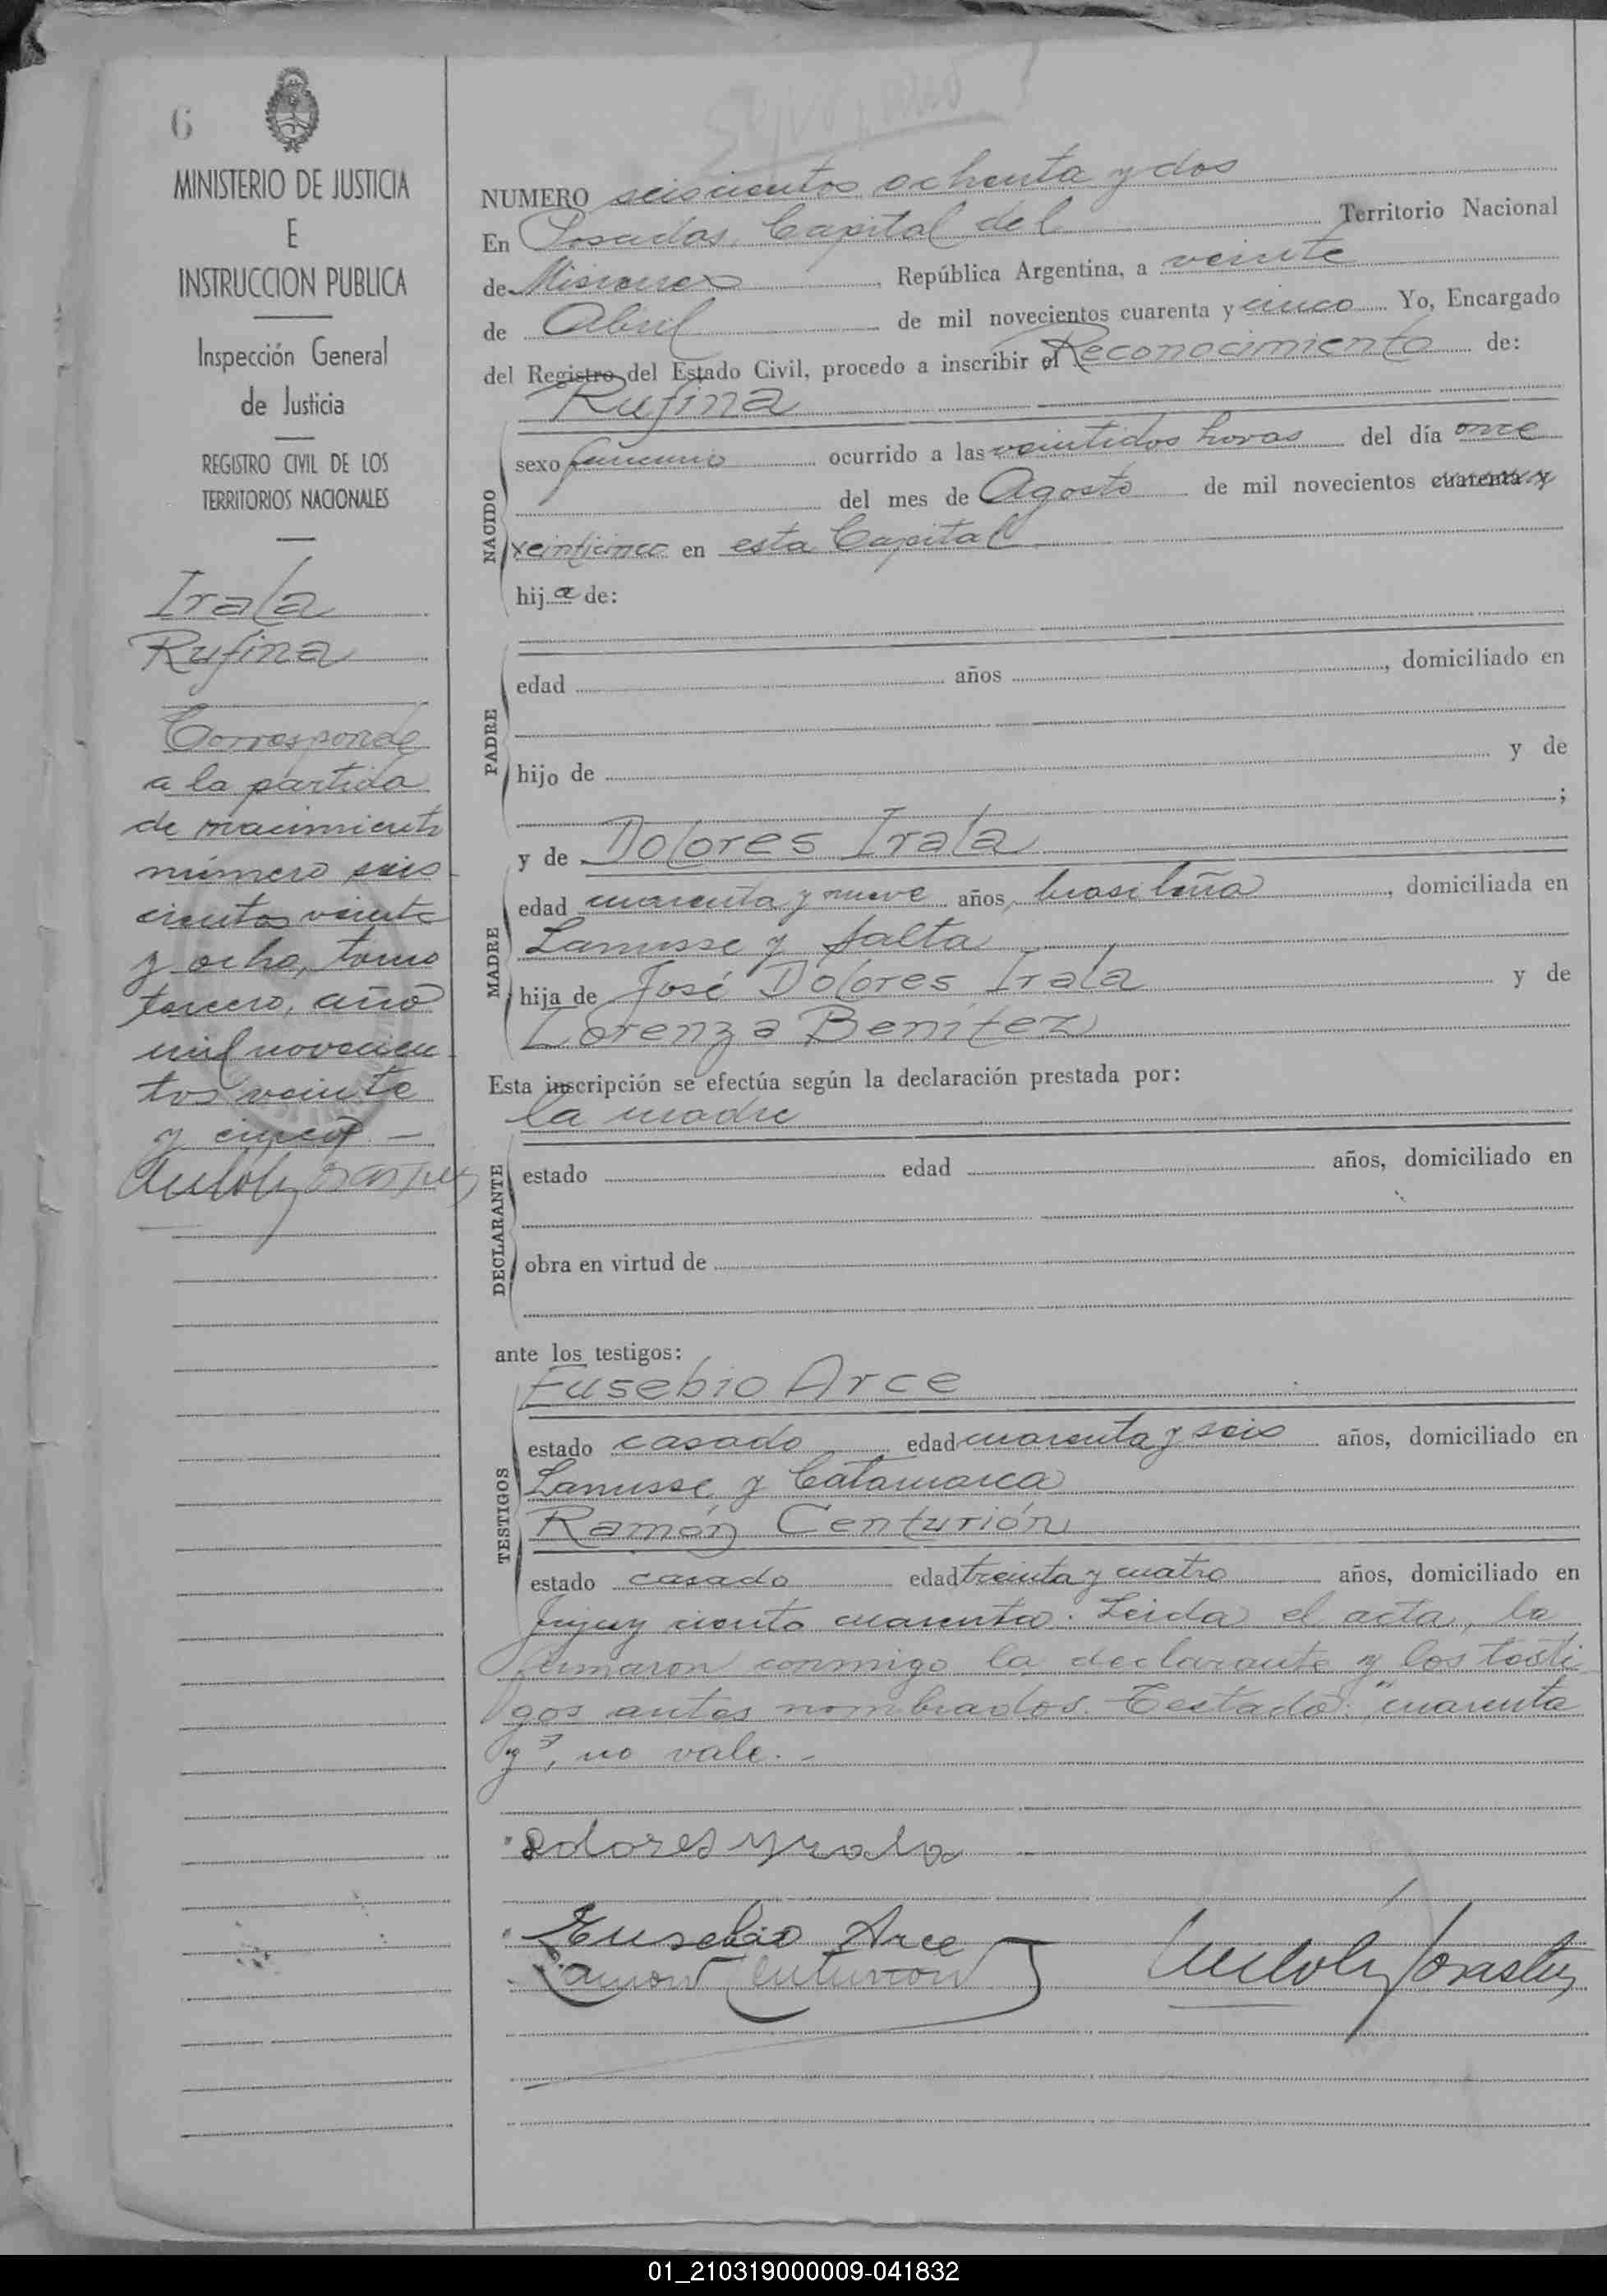 6
MINISTERIO DE JUSTICIA
E
INSTRUCCION PUBLICA
Inspección General
de Justicia
REGISTRO CIVIL DE LOS
TERRITORIOS NACIONALES
Irala
Rufina
Corresponde
a la partida
de nacimiento
número seis
cientos veinte
y ocho, tomo
tercero, año
mil novecien
tos veinte
y cinco. —
NUMERO seiscientos ochenta y dos
En Posadas, Capital del Territorio Nacional
de Misiones, República Argentina, a veinte
de Abril de mil novecientos cuarenta y cinco Yo, Encargado
del Registro del Estado Civil, procedo a inscribir el Reconocimiento de:
Rufina
NACIDO
sexo femenino ocurrido a las veintidos horas del día once
del mes de Agosto de mil novecientos cuarenta y
veinticinco en esta Capital
hija de:
PADRE
edad años , domiciliado en
hijo de y de
;
MADRE
y de Dolores Irala
edad cuarenta y nueve años, brasileña, domiciliada en
Lanusse y Salta
hija de José Dolores Irala y de
Lorenza Benítez
Esta inscripción se efectúa según la declaración prestada por:
la madre
DECLARANTE
estado edad años, domiciliado en
obra en virtud de
ante los testigos:
TESTIGOS
Eusebio Arce
estado casado edad cuarenta y seis años, domiciliado en
Lanusse y Catamarca
Ramón Centurión
estado casado edad treinta y cuatro años, domiciliado en
Jujuy ciento cuarenta. Leida el acta, la
firmaron conmigo la declarante y los testi
gos antes nombrados. Testado: "cuarenta
y", no vale. -
Dolores Yrala
Eusebio Arce
Ramon Centurion
01_210319000009-041832